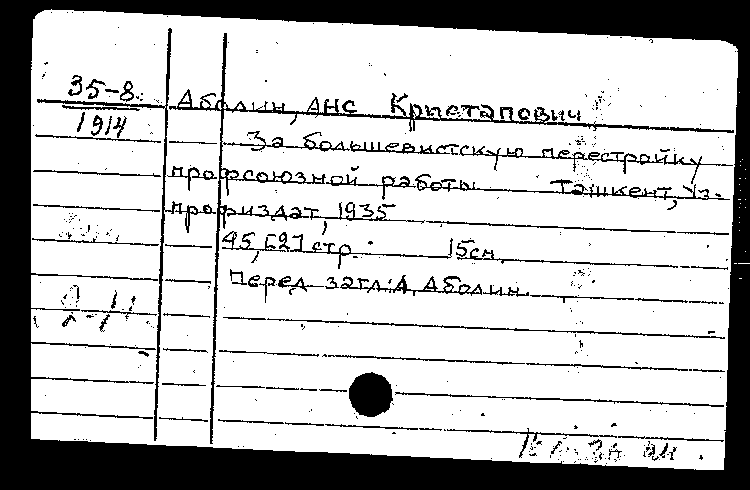 35-8
1914
Аболин, Анс Кристапович
За большевистскую перестройку
профсоюзной работы. Ташкент, Уз-
профиздат, 1935
45, [2] стр. 15см.
Перед загл: А. Аболин.